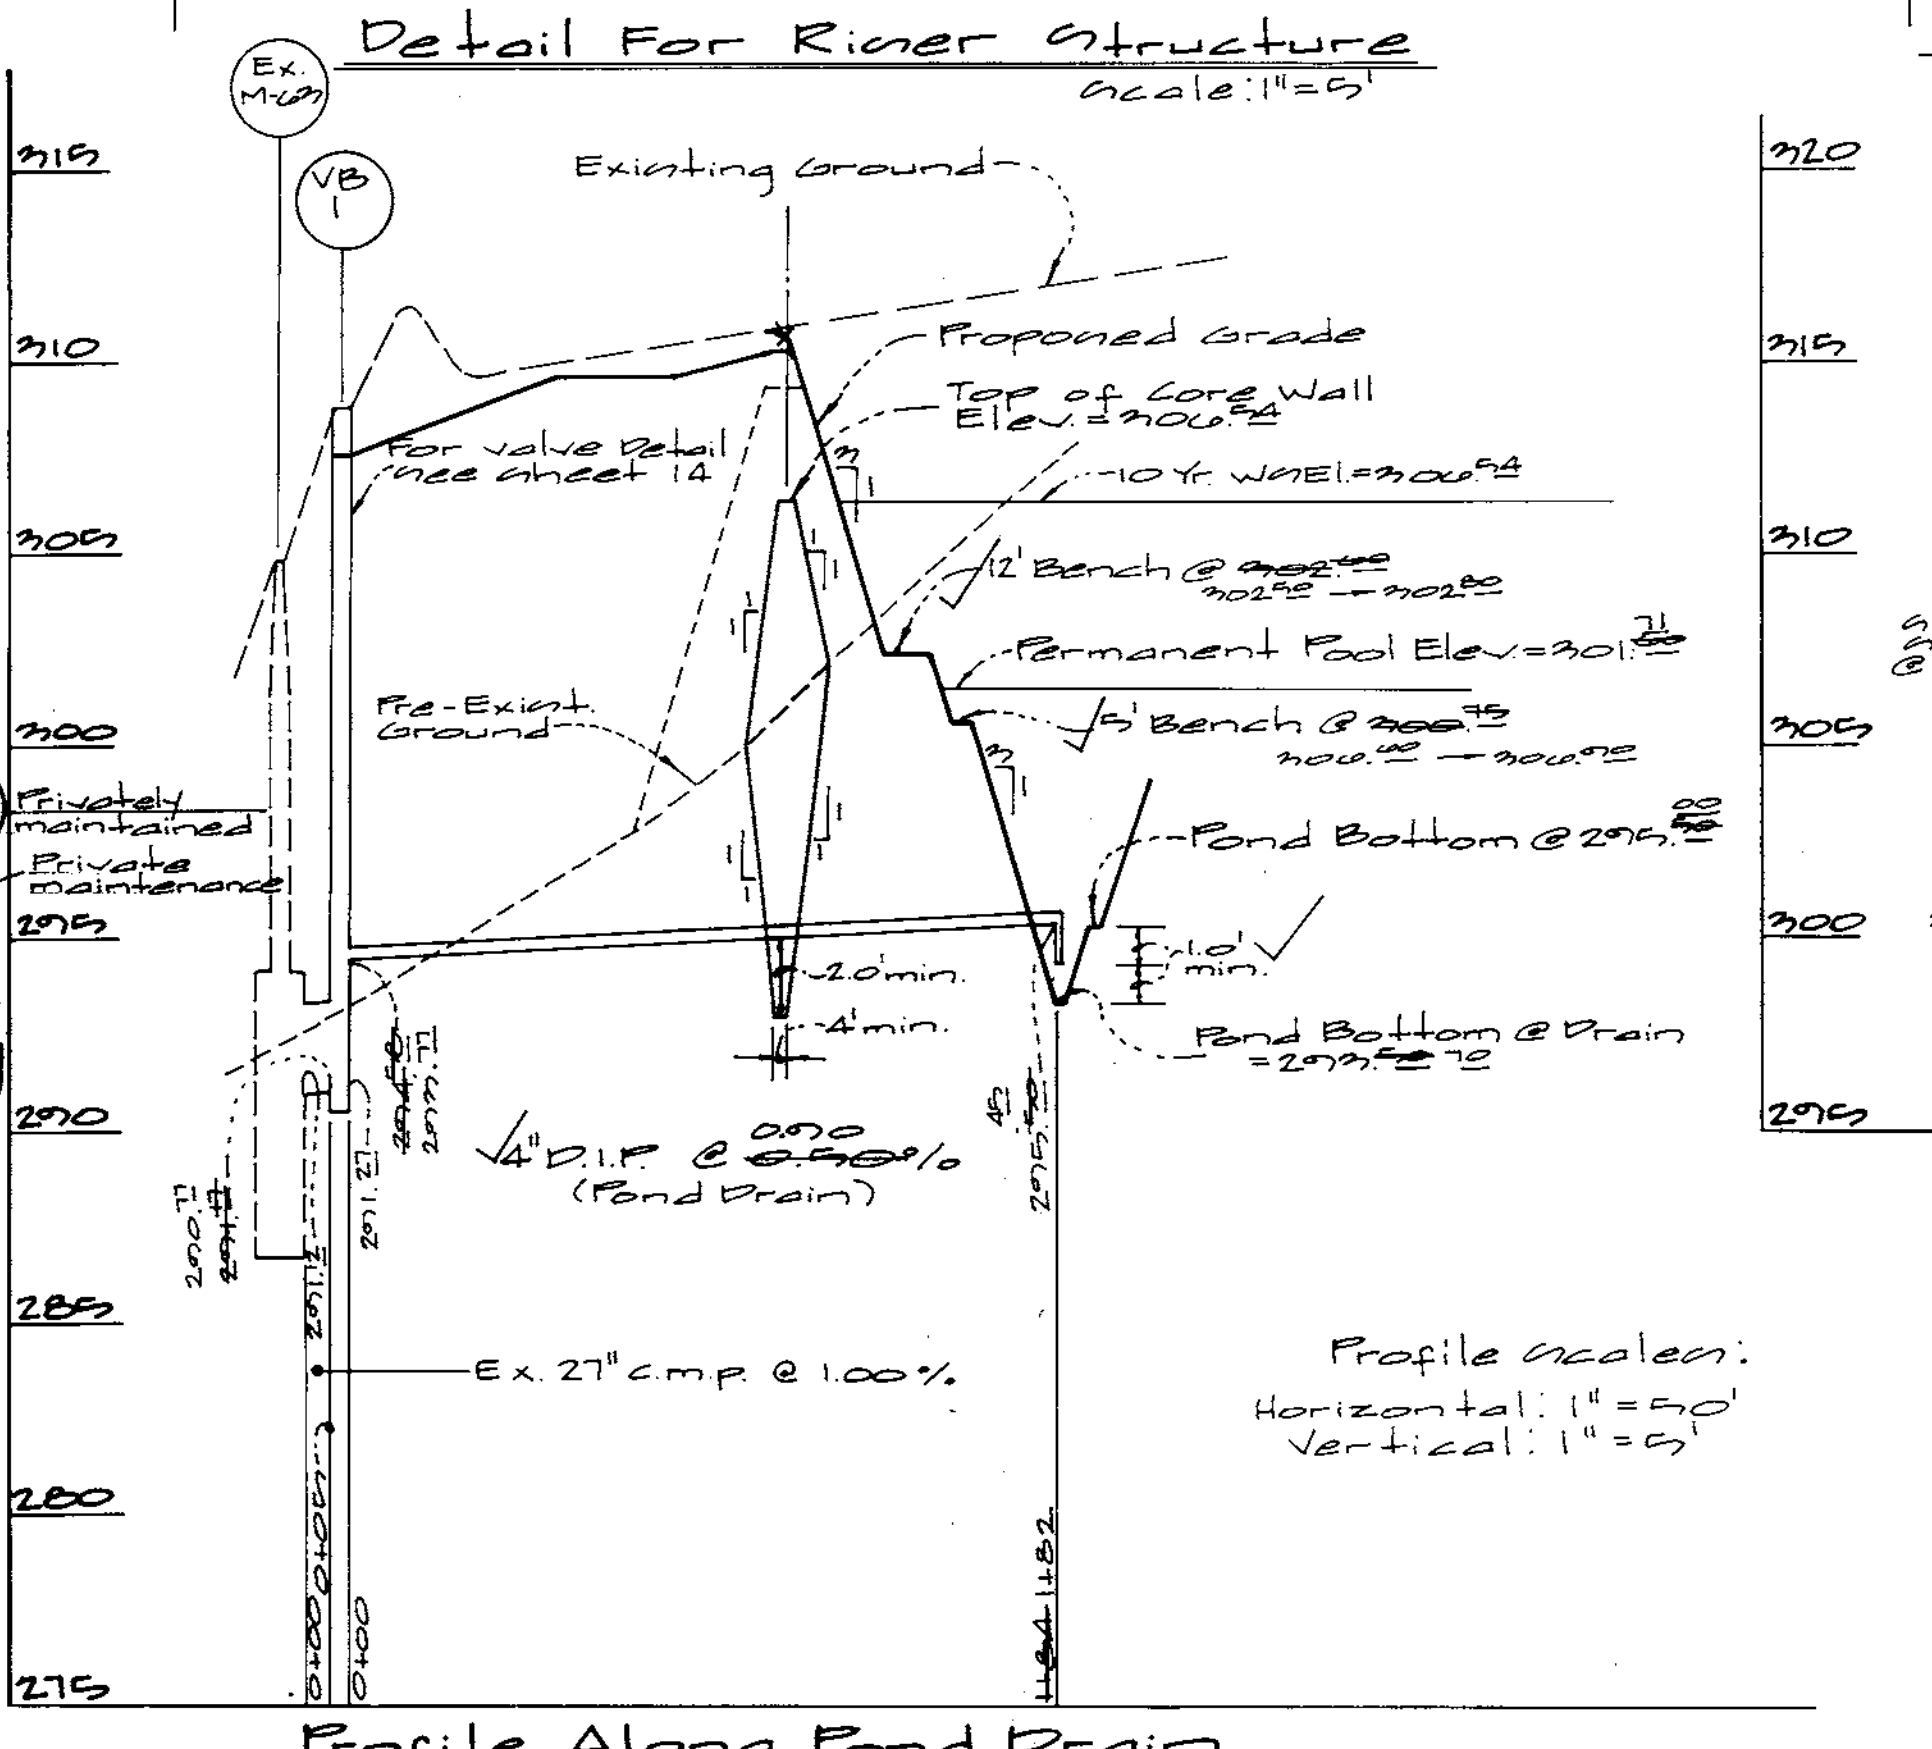 Detail For Riser Structure
Scale: 1" = 5'
Ex.
M-63
VB
1
315
310
305
300
295
290
285
280
275
320
315
310
305
300
295
Existing Ground
Proposed Grade
Top of Core Wall
Elev. = 306.54
3
1
10 Yr. WSEl. = 306.54
For valve Detail
see sheet 14
12' Bench @ 302.00
302.50 — 302.80
Permanent Pool Elev. = 301.50
71
Pre-Exist.
Ground
5' Bench @ 300.75
300.60 — 300.90
3
1
1
1
1
1
1
1
1
1
Privately
maintained
Private
maintenance
Pond Bottom @ 295.50
00
1.0'
min.
2.0' min.
4' min.
Pond Bottom @ Drain
= 293.50 70
293.77
291.27
290.77
291.17
295.50
.45
0.90
4" D.I.P. @ 0.50%
(Pond Drain)
Ex. 27" C.M.P. @ 1.00%
Profile Scales:
Horizontal: 1" = 50'
Vertical: 1" = 5'
0+00
0+05
0+00
1+84 1+82
Profile Along Pond Drain